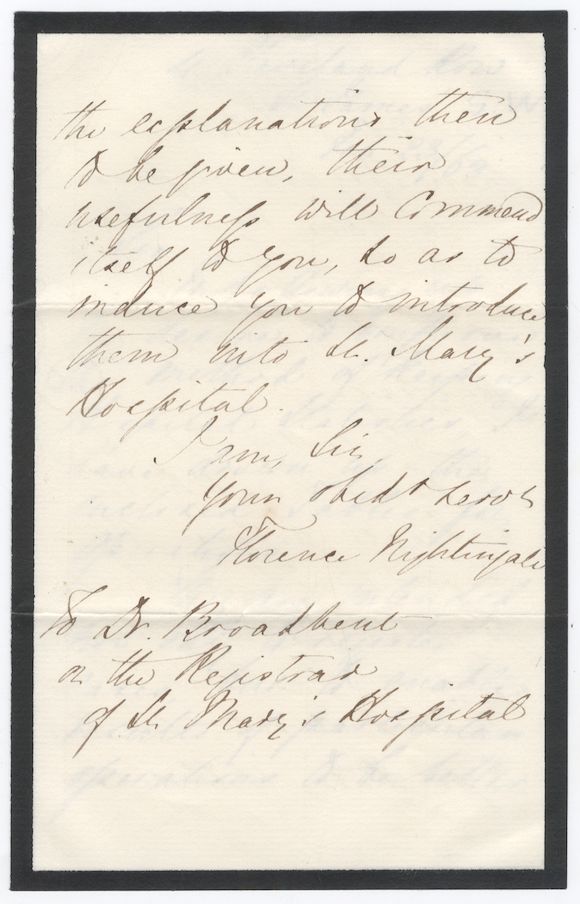 the explanations then
to be given, their
usefulness will commend
itself to you, so as to
induce you to introduce
them into St. Mary's
Hospital.
I am, Sir,
your obedt servt
Florence Nightingale
To Dr. Broadbent
or the Registrar
of St. Mary's Hospital